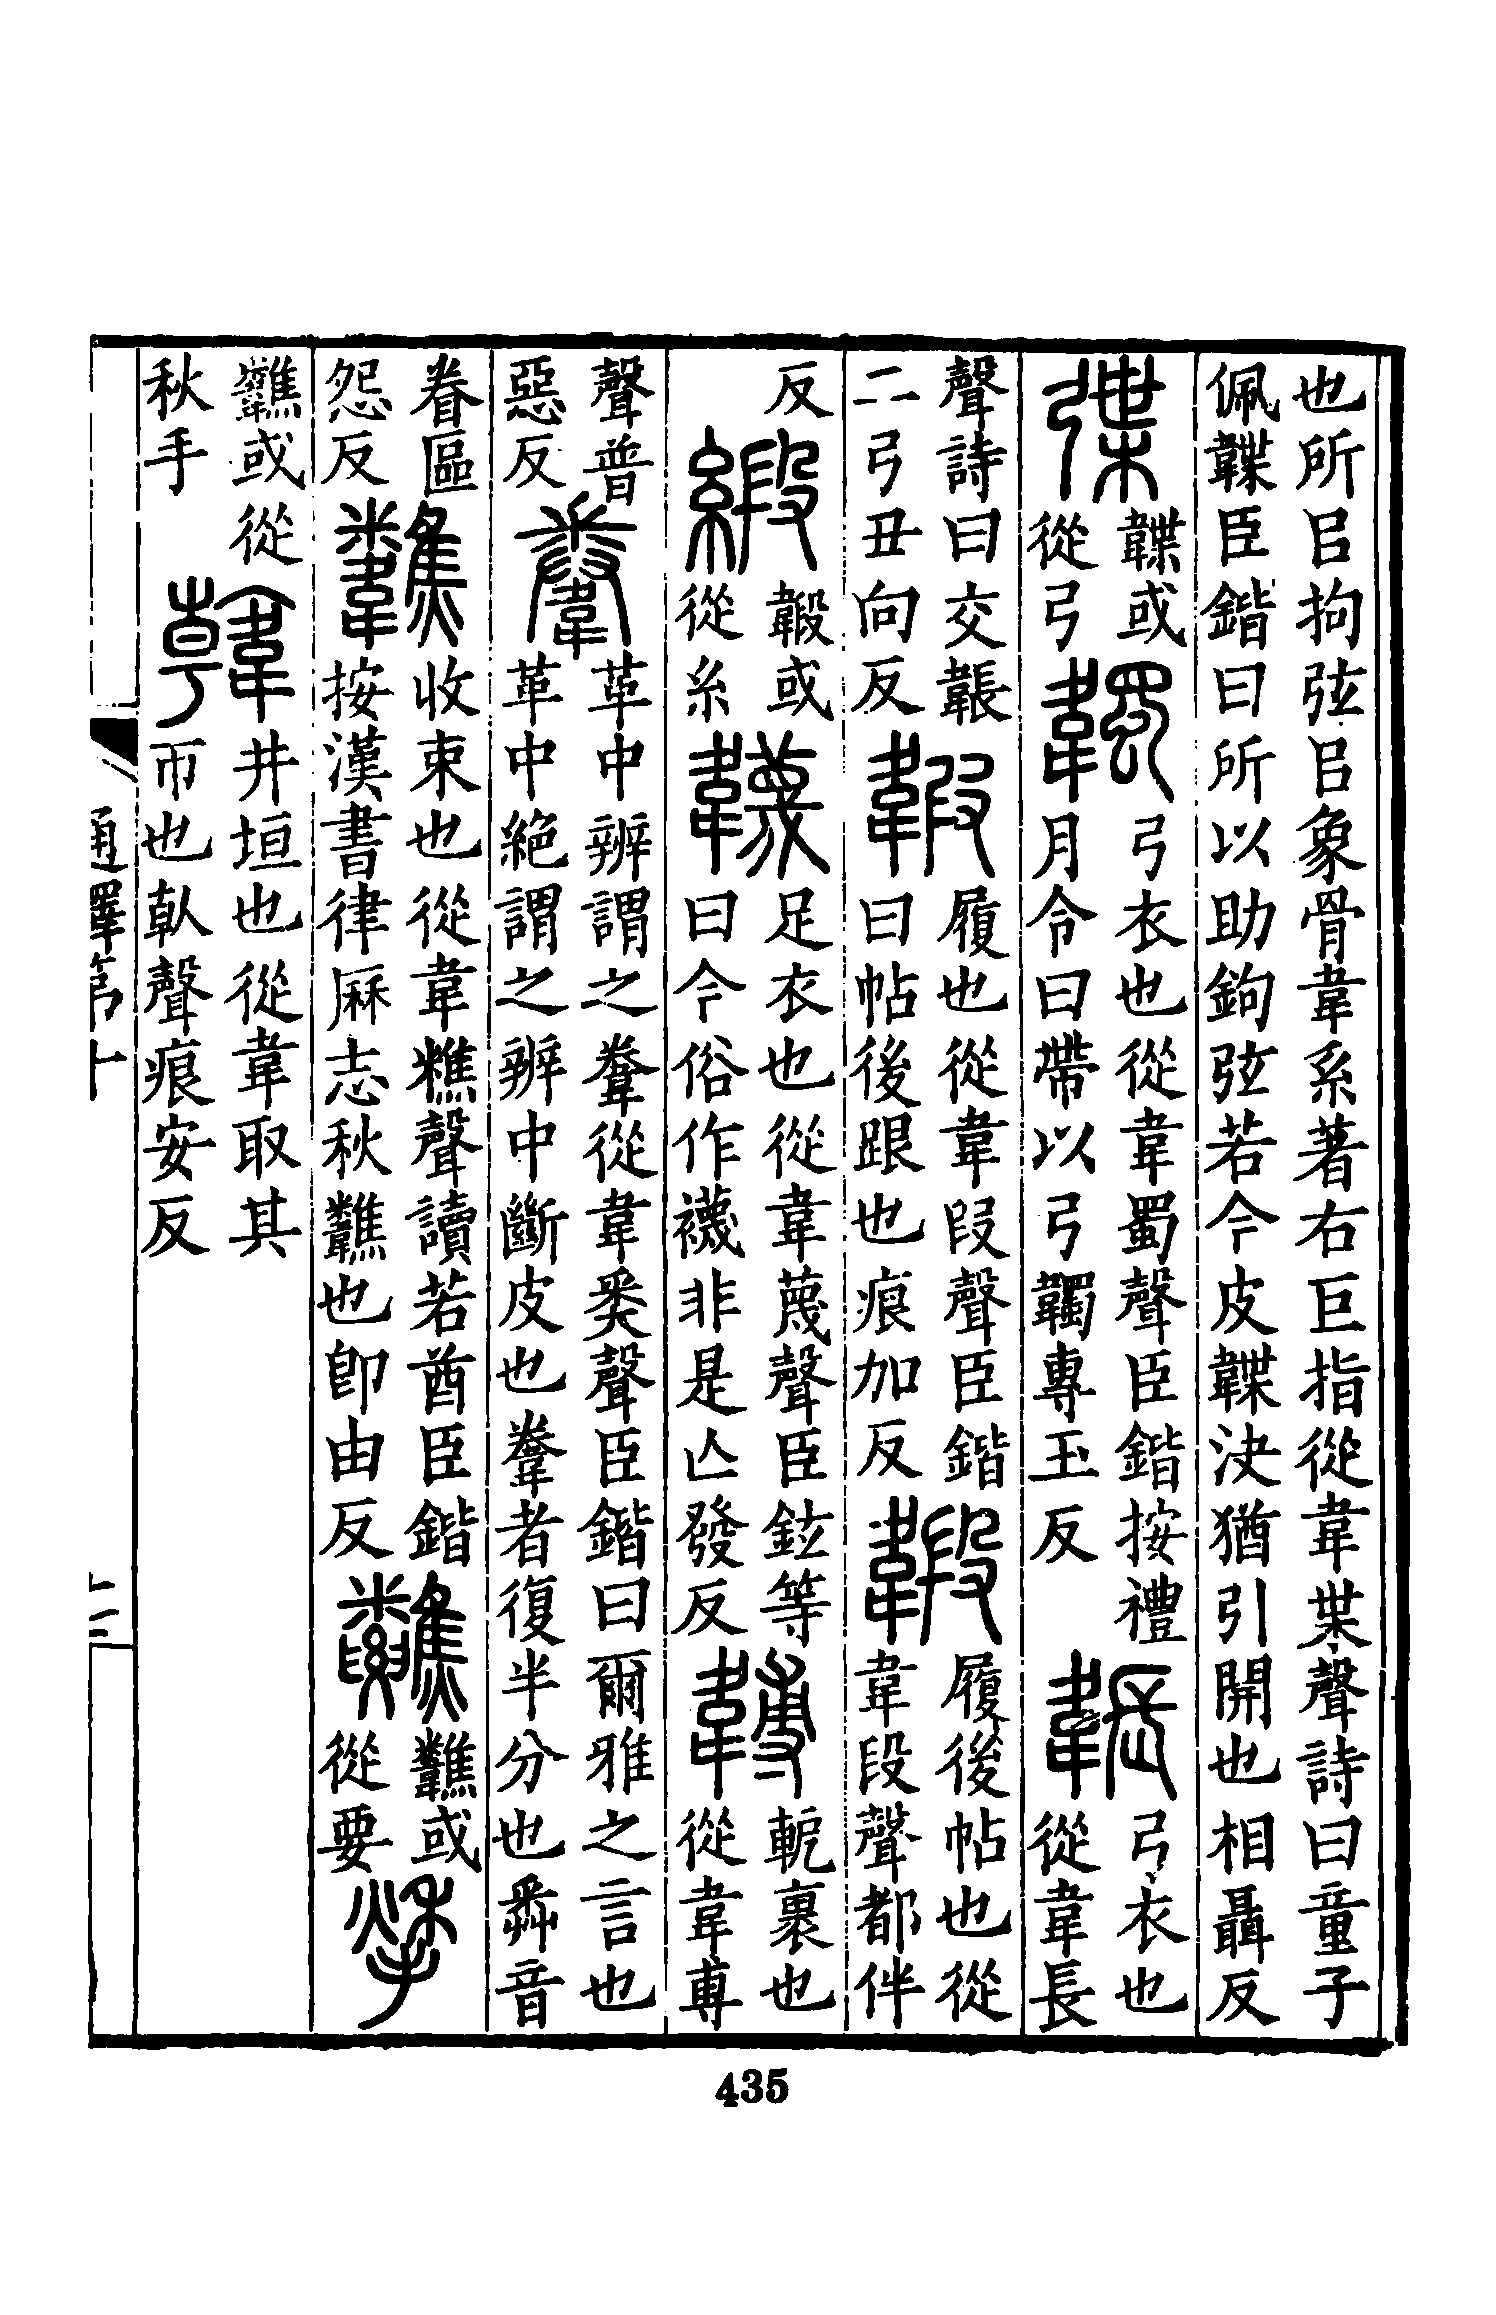 也所㠯拘弦㠯象骨韋系著右巨指從韋枼聲詩曰童子
佩韘臣鍇曰所以助鉤弦若今皮韘決猶引開也相聶反
弽
韘或
從弓
韣
弓衣也從韋蜀聲臣鍇按禮
月令曰帶以弓韣專玉反
韔
弓衣也
從韋長
聲詩曰交韔
二弓丑向反
䪗
履也從韋叚聲臣鍇
曰帖後跟也痕加反
𩏇
履後帖也從
韋段聲都伴
反
緞
𩏇或
從糸
韤
足衣也從韋蔑聲臣鉉等
曰今俗作襪非是亾發反
䪙
軛裹也
從韋尃
聲普
惡反
韏
革中辨謂之韏從韋𢍏聲臣鍇曰爾雅之言也
革中絕謂之辨中斷皮也韏者復半分也𢍏音
眷區
怨反
𩏷
收束也從韋糕聲讀若酋臣鍇
按漢書律厤志秋𩏷也卽由反
𩏷或
從要
揫
𩏷或從
秋手
韓
井垣也從韋取其
帀也倝聲痕安反
通釋第十
435